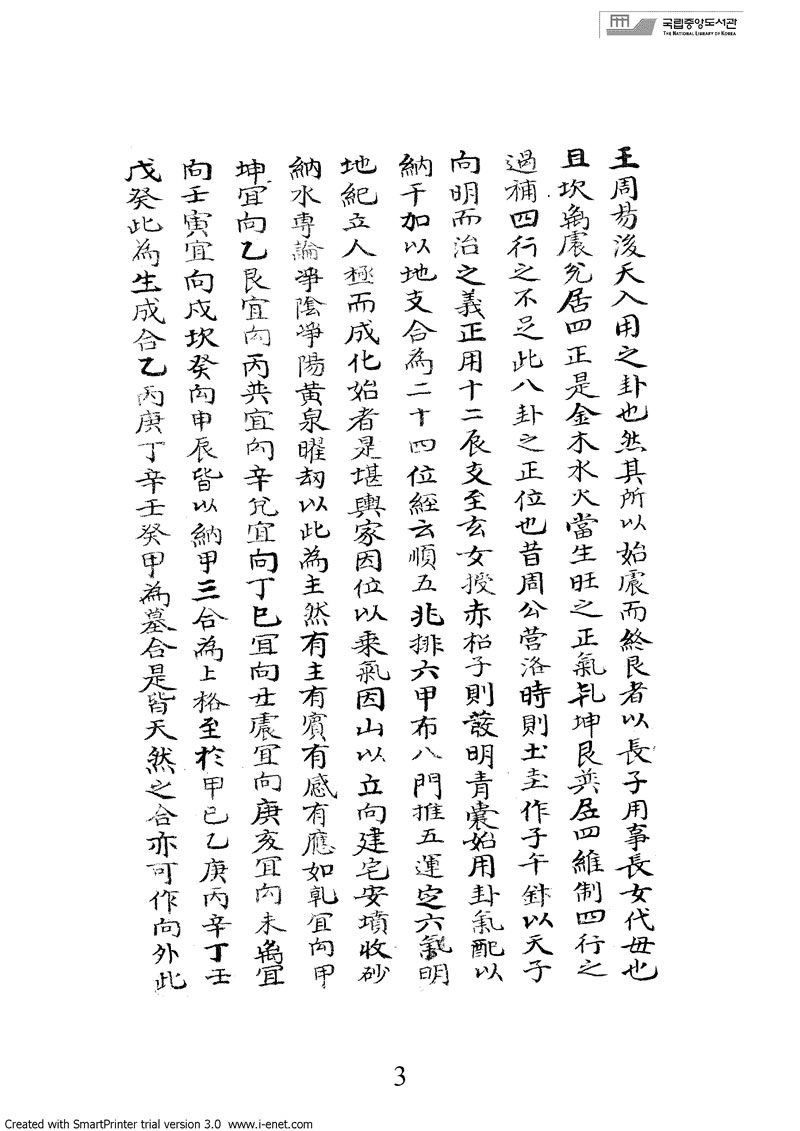 국립중앙도서관
THE NATIONAL LIBRARY OF KOREA
王周易後天入用之卦也然其所以始震而終艮者以長子用事長女代毋也
且坎离震兌居四正是金木水火當生旺之正氣乹坤艮巽居四維制四行之
過補四行之不足此八卦之正位也昔周公営洛時則土圭作子午針以天子
向明而治之義正用十二辰支至玄女授赤松子則發明青囊始用卦氣配以
納干加以地支合為二十四位經云順五兆排六甲布八門推五運定六氣明
地紀立人極而成化始者是堪輿家因位以乘氣因山以立向建宅安墳收砂
納水専論淨陰淨陽黃泉曜刼以此為主然有主有賓有感有應如乹宜向甲
坤宜向乙艮宜向丙巽宜向辛兌宜向丁巳宜向丑震宜向庚亥宜向未离宜
向壬寅宜向戌坎癸向申辰皆以納甲三合為上格至於甲己乙庚丙辛丁壬
戊癸此為生成合乙丙庚丁辛壬癸甲為墓合是皆天然之合亦可作向外此
3
Created with SmartPrinter trial version 3.0 www.i-enet.com